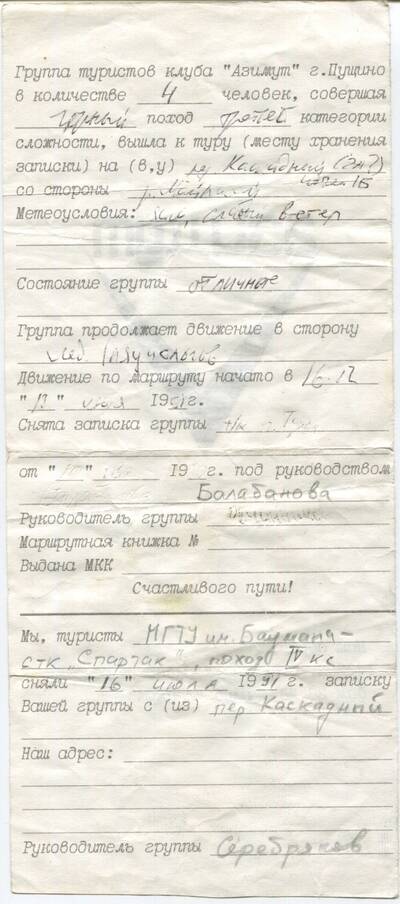 Группа туристов клуба "Азимут" г.Пущино
в количестве 4 человек, совершая
горный поход третей категории
сложности, вышла к туру (месту хранения
записки) на (в,у) пер Каскадный
со стороны 1Б
Метеоусловия: ветер
Состояние группы отличное
Группа продолжает движение в сторону
лед.
Движение по маршруту начато в 16-12
" " июля 1991г.
Снята записка группы
от " " 19 г. под руководством
Балабанова
Руководитель группы
Маршрутная книжка №
Выдана МКК
Счастливого пути!
Мы, туристы МГТУ им. Баумана-
стк "Спартак", поход IV кс
сняли "16" июля 1991 г. записку
Вашей группы с (из) пер Каскадный
Наш адрес:
Руководитель группы Серебряков